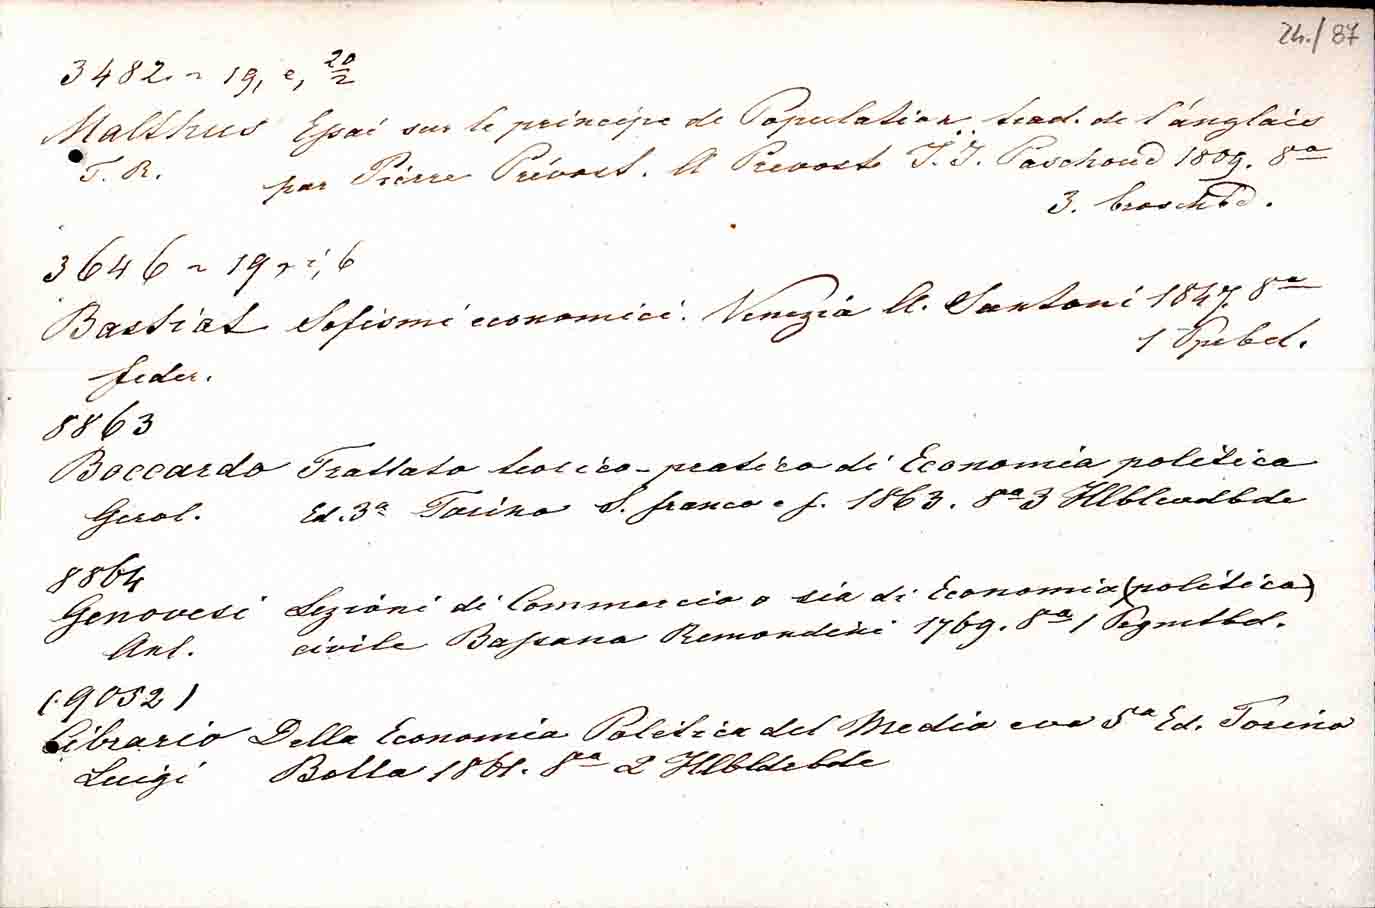 24./87
3482 ~ 19, e, 20/2
Malthus Essai sur le principe de Population, trad. de l'anglais
T. R. par Pierre Prévost. A Prevost J. J. Paschoud 1809. 8º
3. broschbd.
3646 ~ 19, i, 6
Bastiat Sofismi economici. Venezia A. Santoni 1847. 8º
1 Ppebd.
feder.
8863
Boccardo Trattato teorico-pratico di Economia politica
Gerol. Ed. 3ª Torino S. franco e f. 1863. 8º 3 Hlblwdbde
8864
Genovesi Lezioni di Commercio o sia di Economia (politica)
Ant. civile Bassano Remondini 1769. 8º 1 Pegmtbd.
(9052)
Cibrario Della Economia Politica del Medio evo 5ª Ed. Torino
Luigi Botta 1861. 8º 2 Hlbldrbde